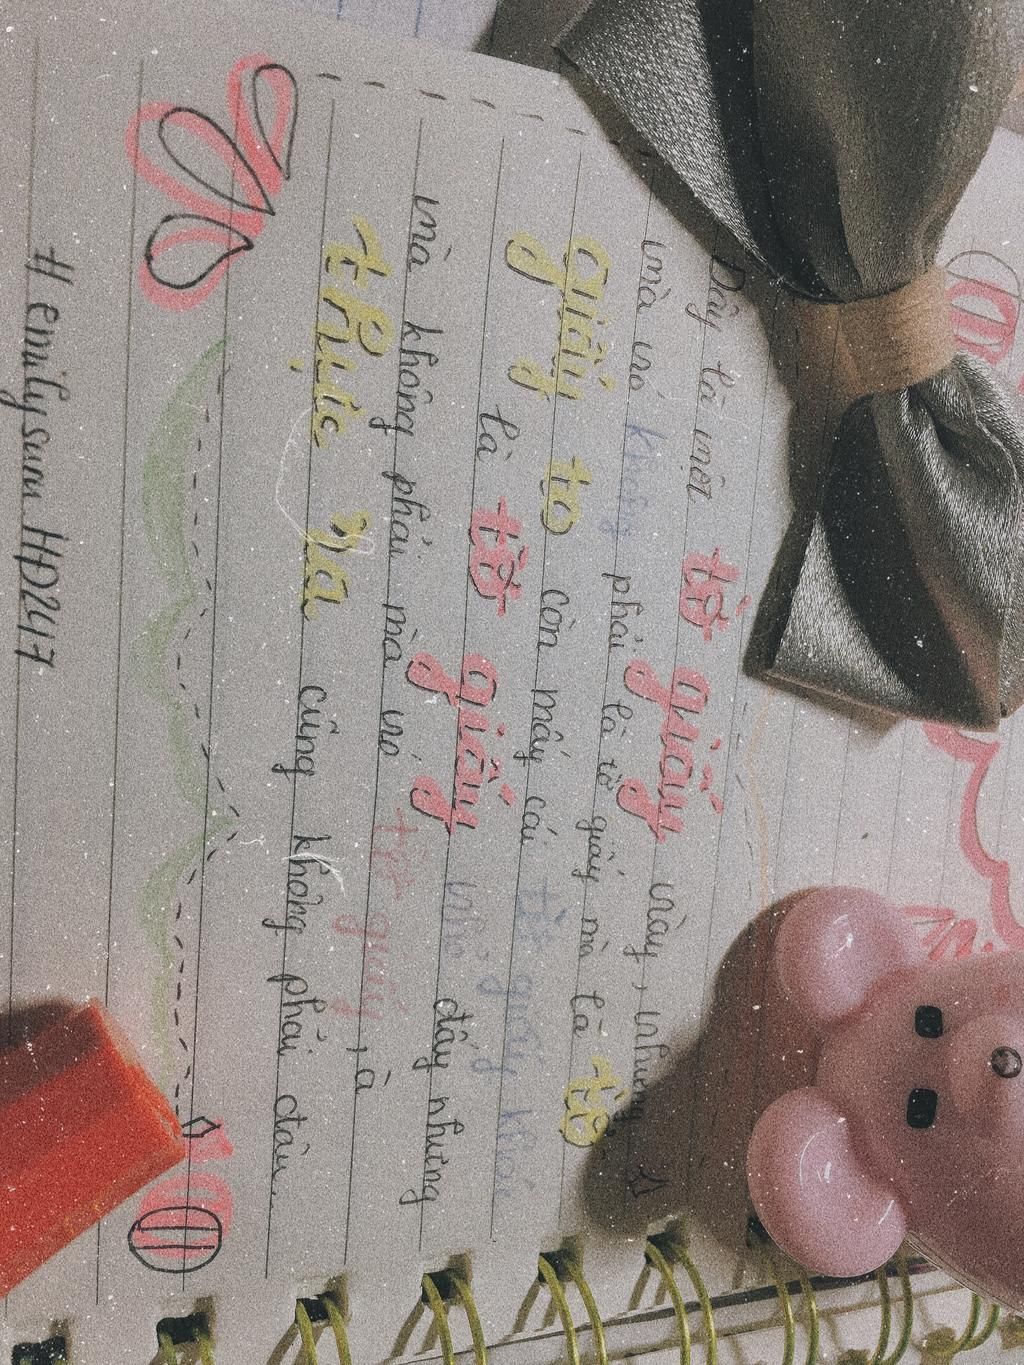 Đây là một tờ giấy này, nhưng
mà nó không phải là tờ giấy mà là tờ
giấy to còn mấy cái tờ giấy khác
là tờ giấy nhỏ đấy nhưng
mà không phải mà nó tờ giấy, à
thực ra cũng không phải đâu..
# emilysunHD2417